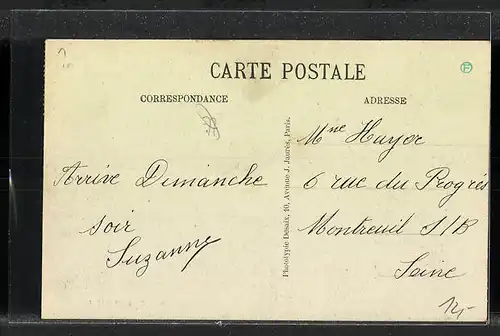 CARTE POSTALE
CORRESPONDANCE
ADRESSE
Arrive Dimanche
soir
Suzanne
Phototypie Desaix, 10, Avenue J. Jaurès, Paris.
Mme Huyer
6 rue du Progrès
Montreuil S/B
Seine
12,-
F